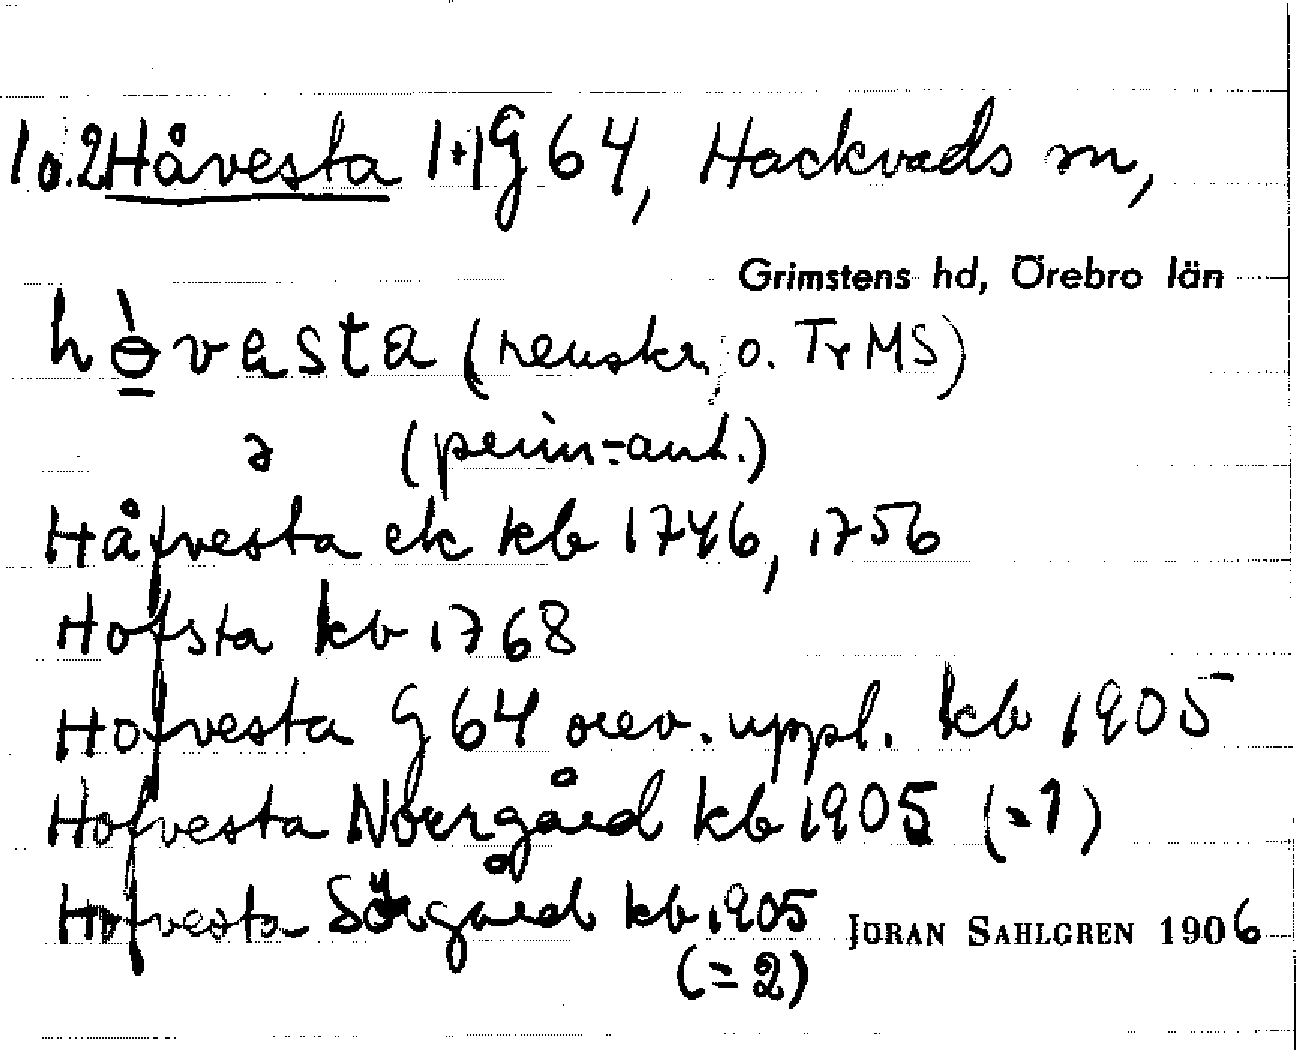 1 o. 2 Håvesta 1+1 G 64, Hackvads sn,
Grimstens hd, Örebro län
hɵ̀vesta (renskr. o. TrMS)
ə (penn-ant.)
Håfvesta ek kb 1746, 1756
Hofsta kb 1768
Hofvesta G 64 orev. uppl. kb 1905
Hofvesta Norrgård kb 1905 (=1)
Hofvesta Sörgård kb 1905 JÖRAN SAHLGREN 1906
(=2)